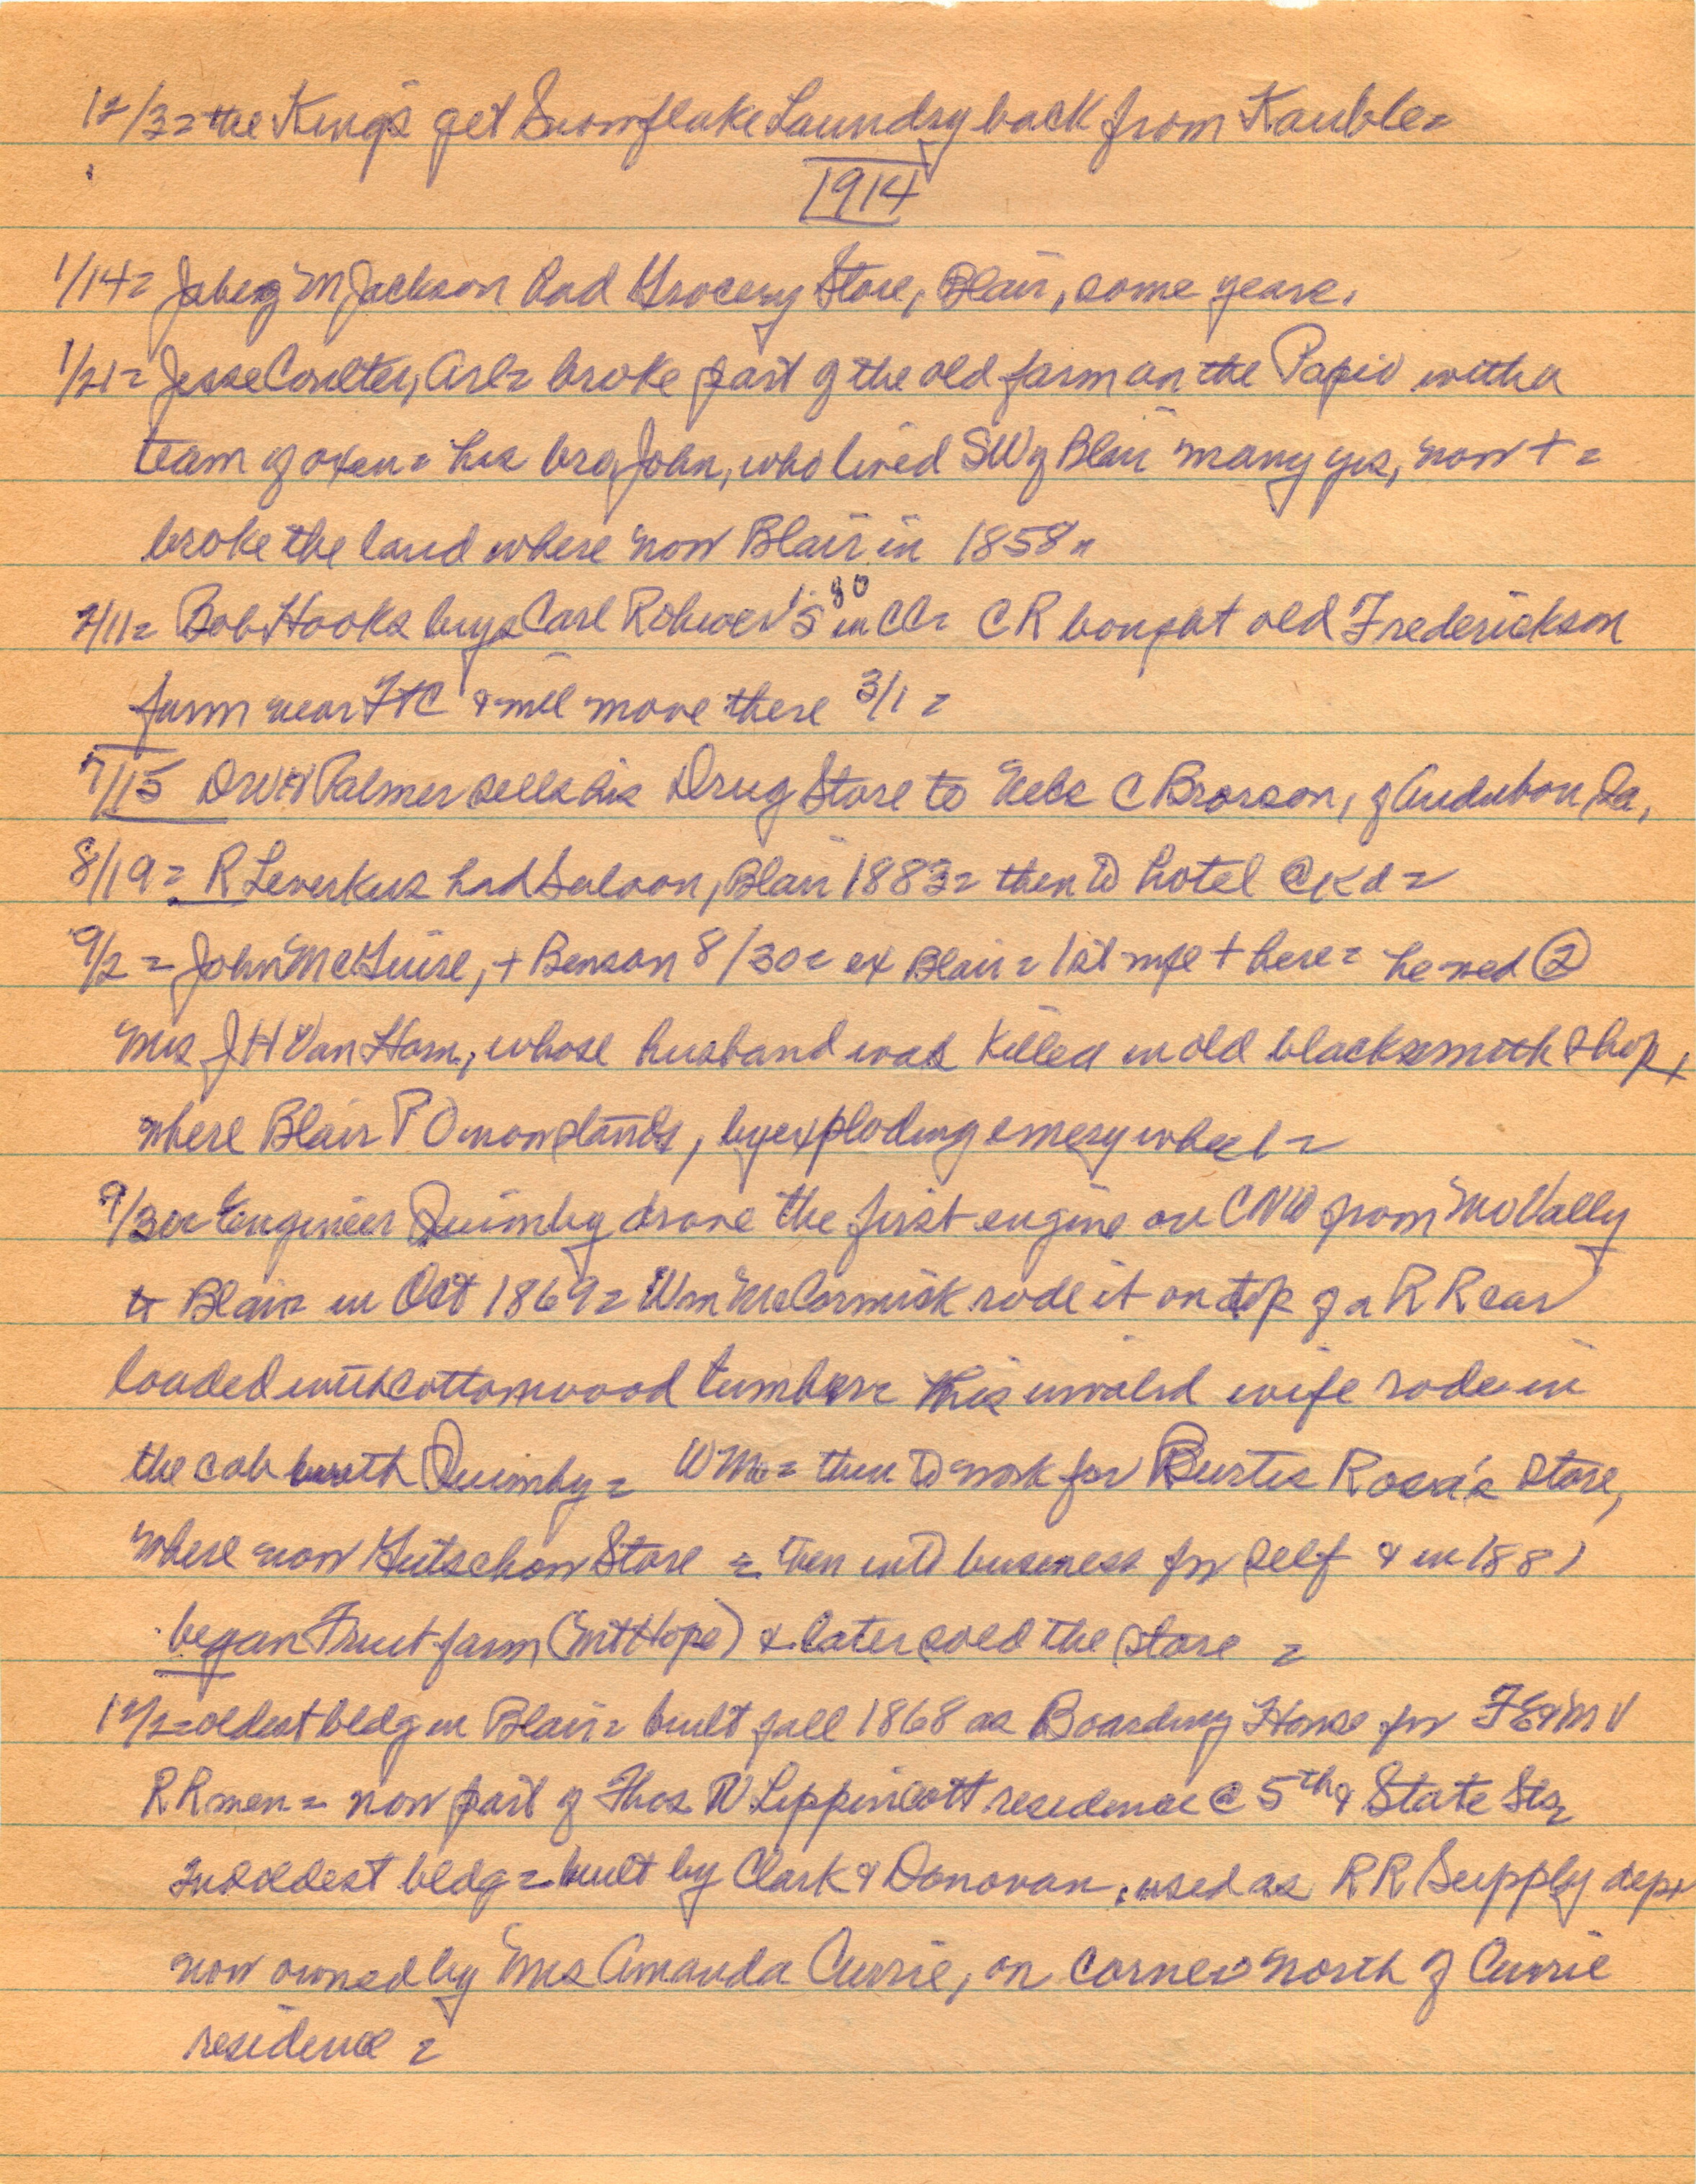 12/3= the Kings get Snowflake Laundry back from Kauble=
1914
1/14= Jaberg M Jackson had Grocery Store, Blair, some years.
1/21= Jesse Coulter, Arl= broke part of the old farm on the Papio with a
team of oxen= his bro John, who lived SW of Blair many yrs, now + =
broke the land where now Blair in 1858=
2/11= Bob Hooks buys Carl Rohwer's 80 in CC= CR bought old Frederickson
farm near FtC & will move there 3/1 =
7/15 Dr WH Palmer sells his Drug Store to Nels C Brorson, of Audubon Ia,
8/19= R Leverkus had Saloon, Blair 1883= then to hotel @ Kd=
9/2= John McGuire, + Benson 8/30= ex Blair= 1st wife + here= he med 2
Mrs J H Van Horn, whose husband was killed in old blacksmith shop,
where Blair P O now stands, by exploding emery wheel=
9/30= Engineer Quimby drove the first engine on CNW from Mo Vally
to Blair in Oct 1869= Wm McCormick rode it on top of a R R car
loaded with cottonwood lumber= his invalid wife rode in
the cab with Quimby= W Mc= then to work for Burtis Rosa's store,
where now Gutschow Store = then into business for self & in 1881
began Fruit farm (Mt Hope) & later sold the store =
12/2= oldest bldg in Blair= built fall 1868 as Boarding House for FE&MV
RR men= now part of Thos W Lippincott residence @ 5th & State Sts=
2nd oldest bldg= built by Clark & Donovan, used as RR Supply dept
now owned by Mrs Amanda Currie, on corner north of Currie
residence =